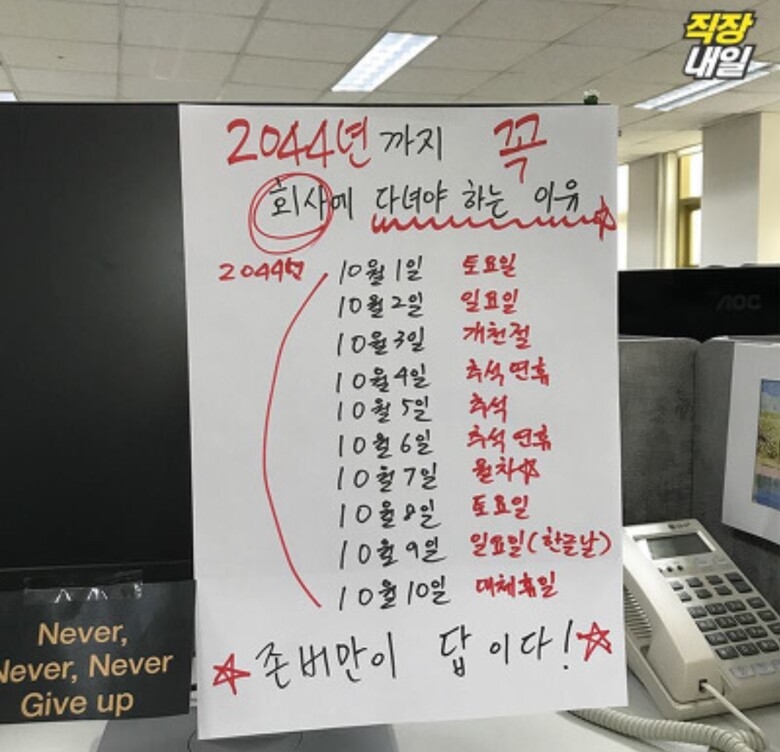 직장
내일
2044년까지 꼭
회사에 다녀야 하는 이유
2044년 10월 1일 토요일
10월 2일 일요일
10월 3일 개천절
10월 4일 추석 연휴
10월 5일 추석
10월 6일 추석 연휴
10월 7일 월차
10월 8일 토요일
10월 9일 일요일(한글날)
10월 10일 대체휴일
존버만이 답이다!
Never,
Never, Never
Give up
AOC